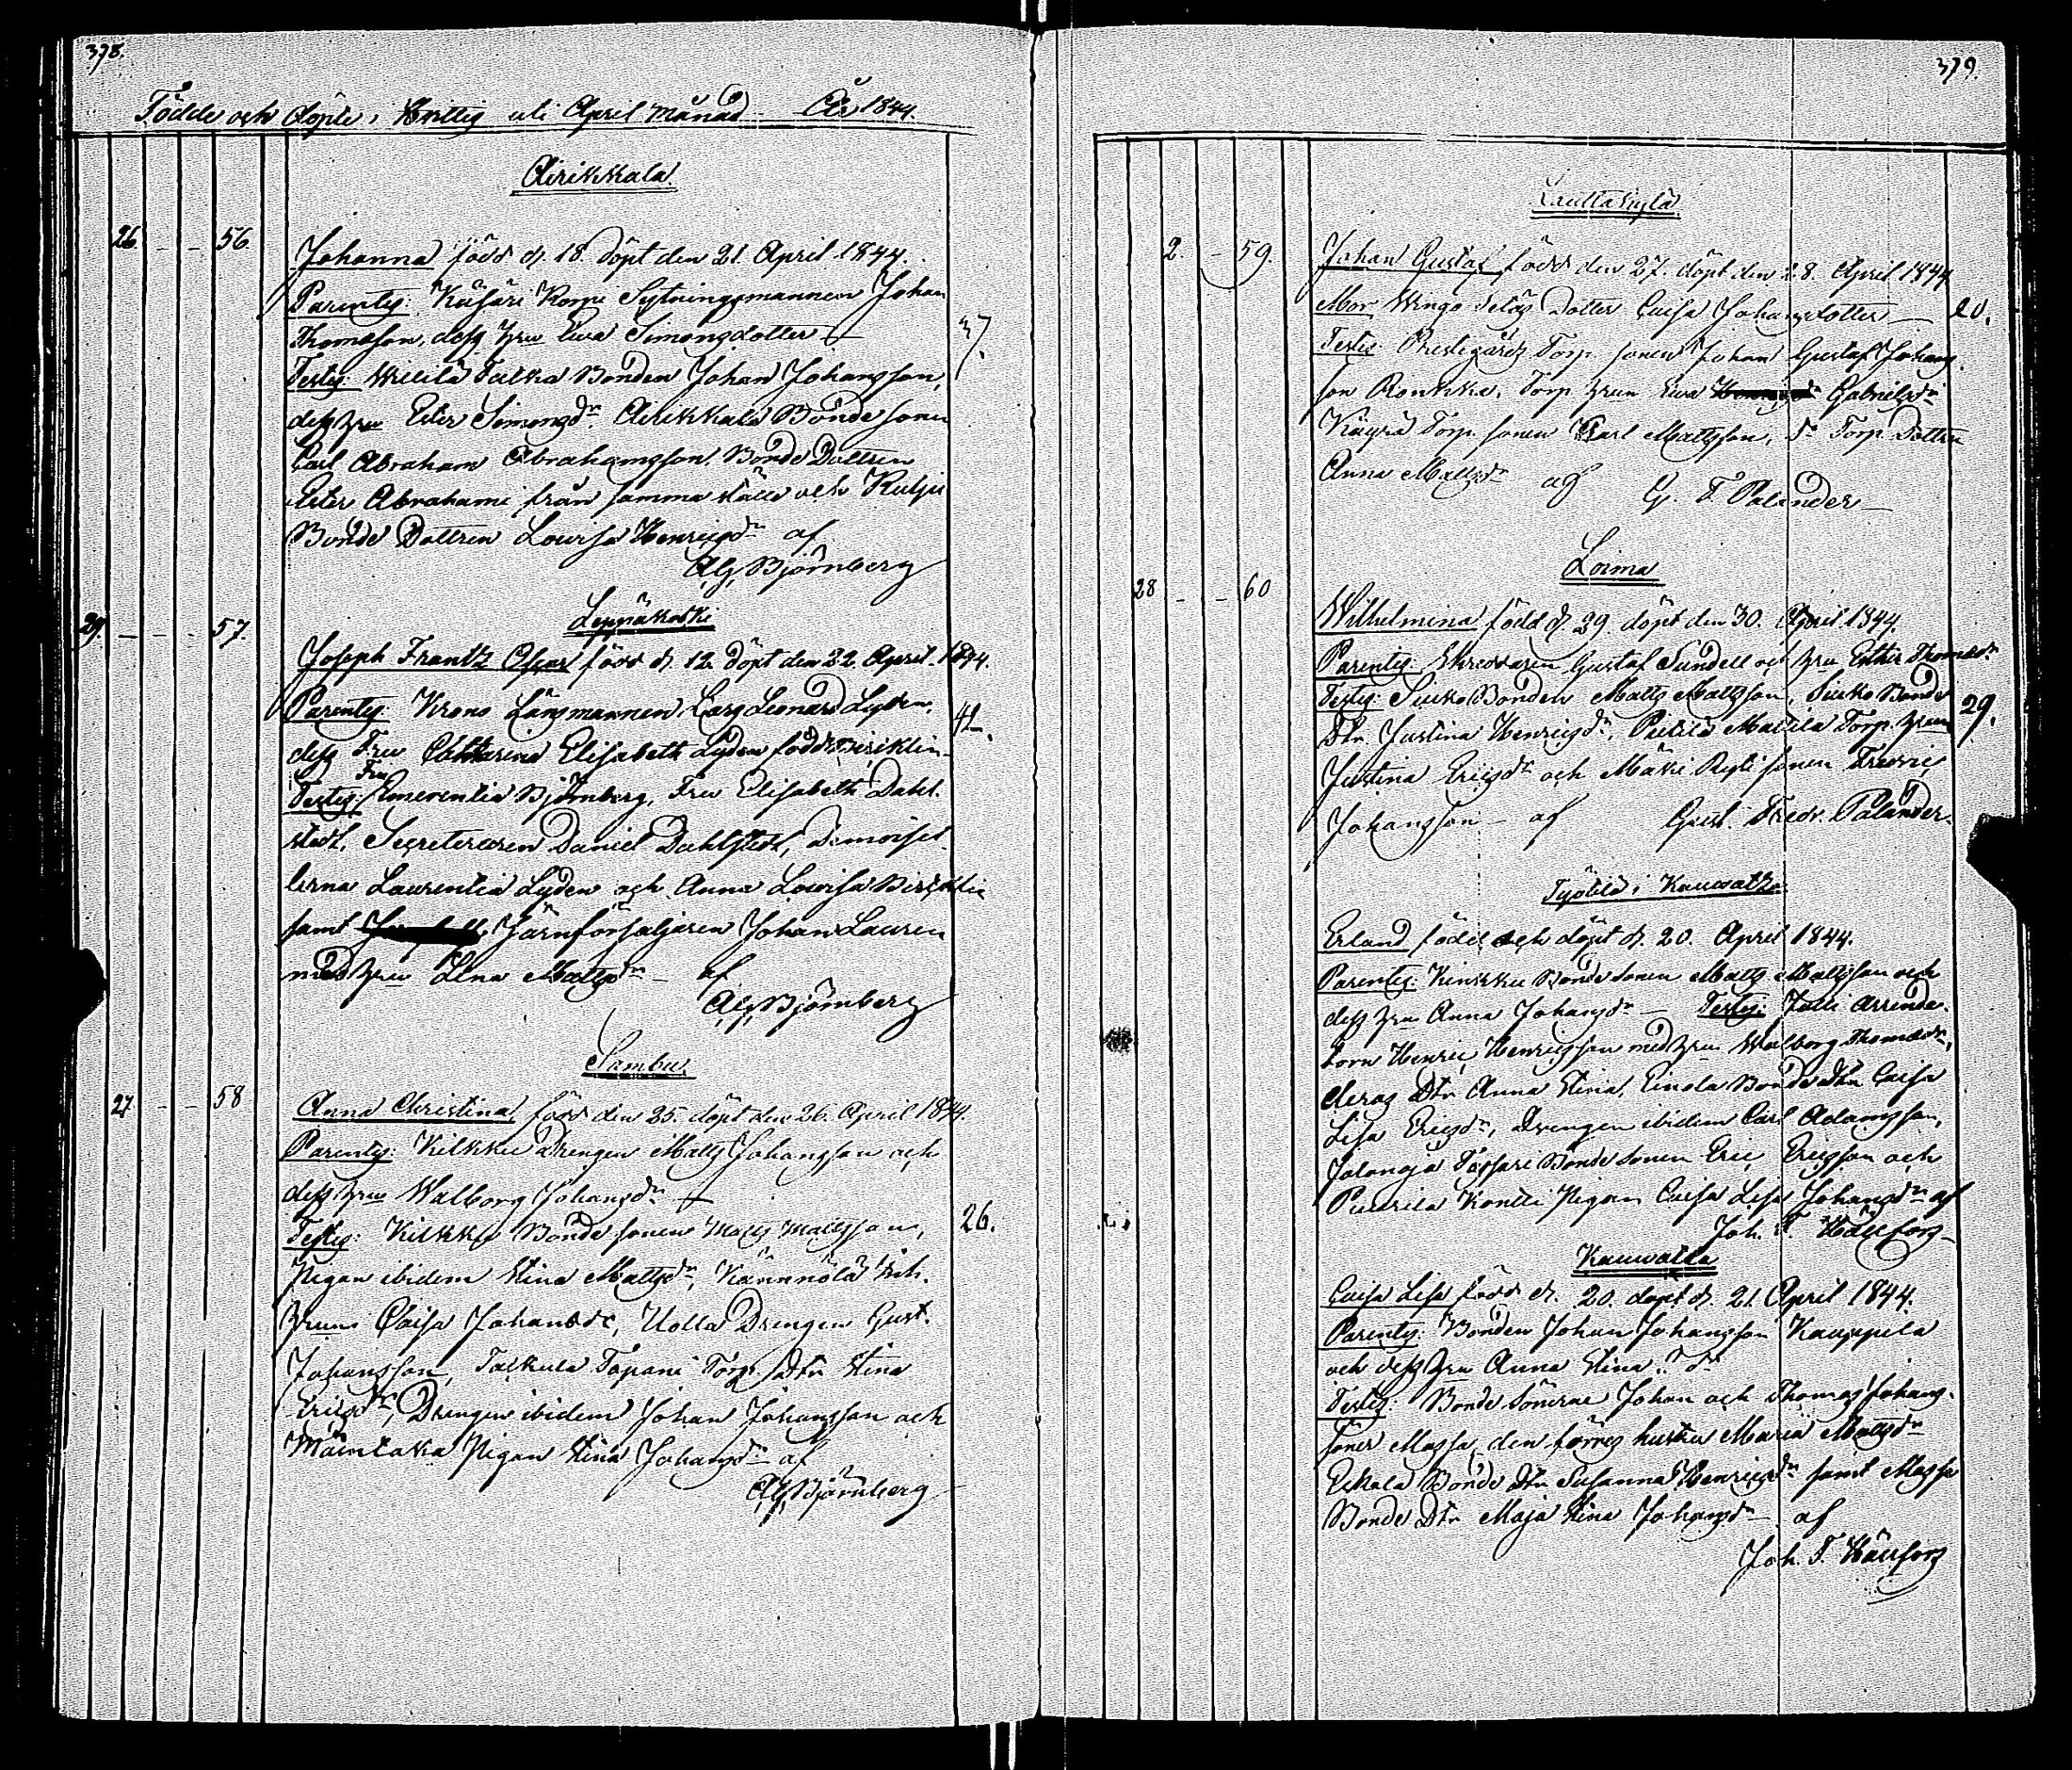 378.
Födde och döpte i Hvittis uti April Månad År 1844.
Airikkala.
26. - - 56.
Johanna född d. 18. döpt den 21. April 1844.
Parentes: Käfäri Korpi Sytningsmannen Johan
Thomasson, dess hru Ewa Simonsdotter 37.
Testes: Bonden Johan Johansson,
dess hru Ester Simonsdr. Airikkala Bonde sonen
Carl Abraham Abrahamsson. Bonde Dottren
Ester Abrahami från samma ställe och Kutju
Bonde Dottren Lowisa Henricsdr af
Ax. Björnberg
Leppäkoski
29. - - - 57.
Joseph Frantz Oscar född d. 12. döpt den 22. April 1844.
Parentes: Krono Länsmannen Lars Leonard Lyden,
dess Fru Catharina Elisabeth Lyden född 42.
Fru
Testes: Emerentia Björnberg, Fru Elisabeth Dahl-
stedt, Secreteraren Daniel Dahlstedt, Demoisel-
lerna Laurentia Lyden och Anna Lowisa
samt Järnförsäljaren Johan Lauren
med hru Lena Mattsdr - af
Ax. Björnberg
Sambu.
27 - - 58
Anna Christina född den 25. döpt den 26. April 1844.
Parentes: Kilkku Drengen Matts Johansson och
dess hru Walborg Johansdr
Testes: Kilkku Bonde sonen Matts Mattsson, 26.
Pigan ibidem Stina Mattsdr, Kännölä
hrun Caisa Johansdr, Uolla Drengen Gust.
Johansson, Talkula Tapani Torp. Dtr Stina
Ericsdr, Drengen ibidem Johan Johansson och
Pigan Stina Johansdr af
Ax. Björnberg
379.
Lauttakylä.
2. - 59.
Johan Gustaf född den 27. döpt den 28. April 1844
Mor Dotter Caisa Johansdotter - 20.
Testes: Prestgårds Torp. sonen Johan Gustaf Johans-
son Ronkka, Torp. hrun Ewa Gabrielsdr
Käyrä Torp. sonen Carl Mattsson, Torp. Dottren
Anna Mattsdr af G. F. Palander
Loima
28 - - 60
Wilhelmina född d. 29. döpt den 30. April 1844.
Parentes: Skreddaren Gustaf Sundell och hru Esther Thomasdr
Testes: Suko Bonden Matts Mattsson, Suko Bonde
Dtr. Justina Henricsdr, Mattila Torp. hrun 29.
Justina Ericsdr och Mäki sonen Fredric
Johansson - af Gust. Fredr. Palander.
i Kauwatza
Erland född och döpt d. 20. April 1844.
Parentes: Kinkku Bonde sonen Matts Mattsson och
dess hru Anna Johansdr - Testes: Arrenda-
torn Henric Henricsson med hru Walborg Thomasdr,
deras Dtr Anna Stina, Einola Bonde Dtr Caisa
Lisa Ericsdr, Drengen ibidem Carl Adamsson,
Jalonoja Tassari Bonde sonen Eric Ericsson och
Puurila Kontti Pigan Caisa Lisa Johansdr af
Joh. F. Hällfors
Kauwatza
Caisa Lisa född d. 20. döpt d. 21. April 1844.
Parentes: Bonden Johan Johansson Kauppila
och dess hru Anna Stina
Testes: Bonde Sönerne Johan och Thomas Johans-
söner Massa, den förres hustru Maria Mattsdr
Eskola Bonde Dtr Susanna Henricsdr samt Massa
Bonde Dtr Maja Stina Johansdr - af
Joh. F. Hällfors